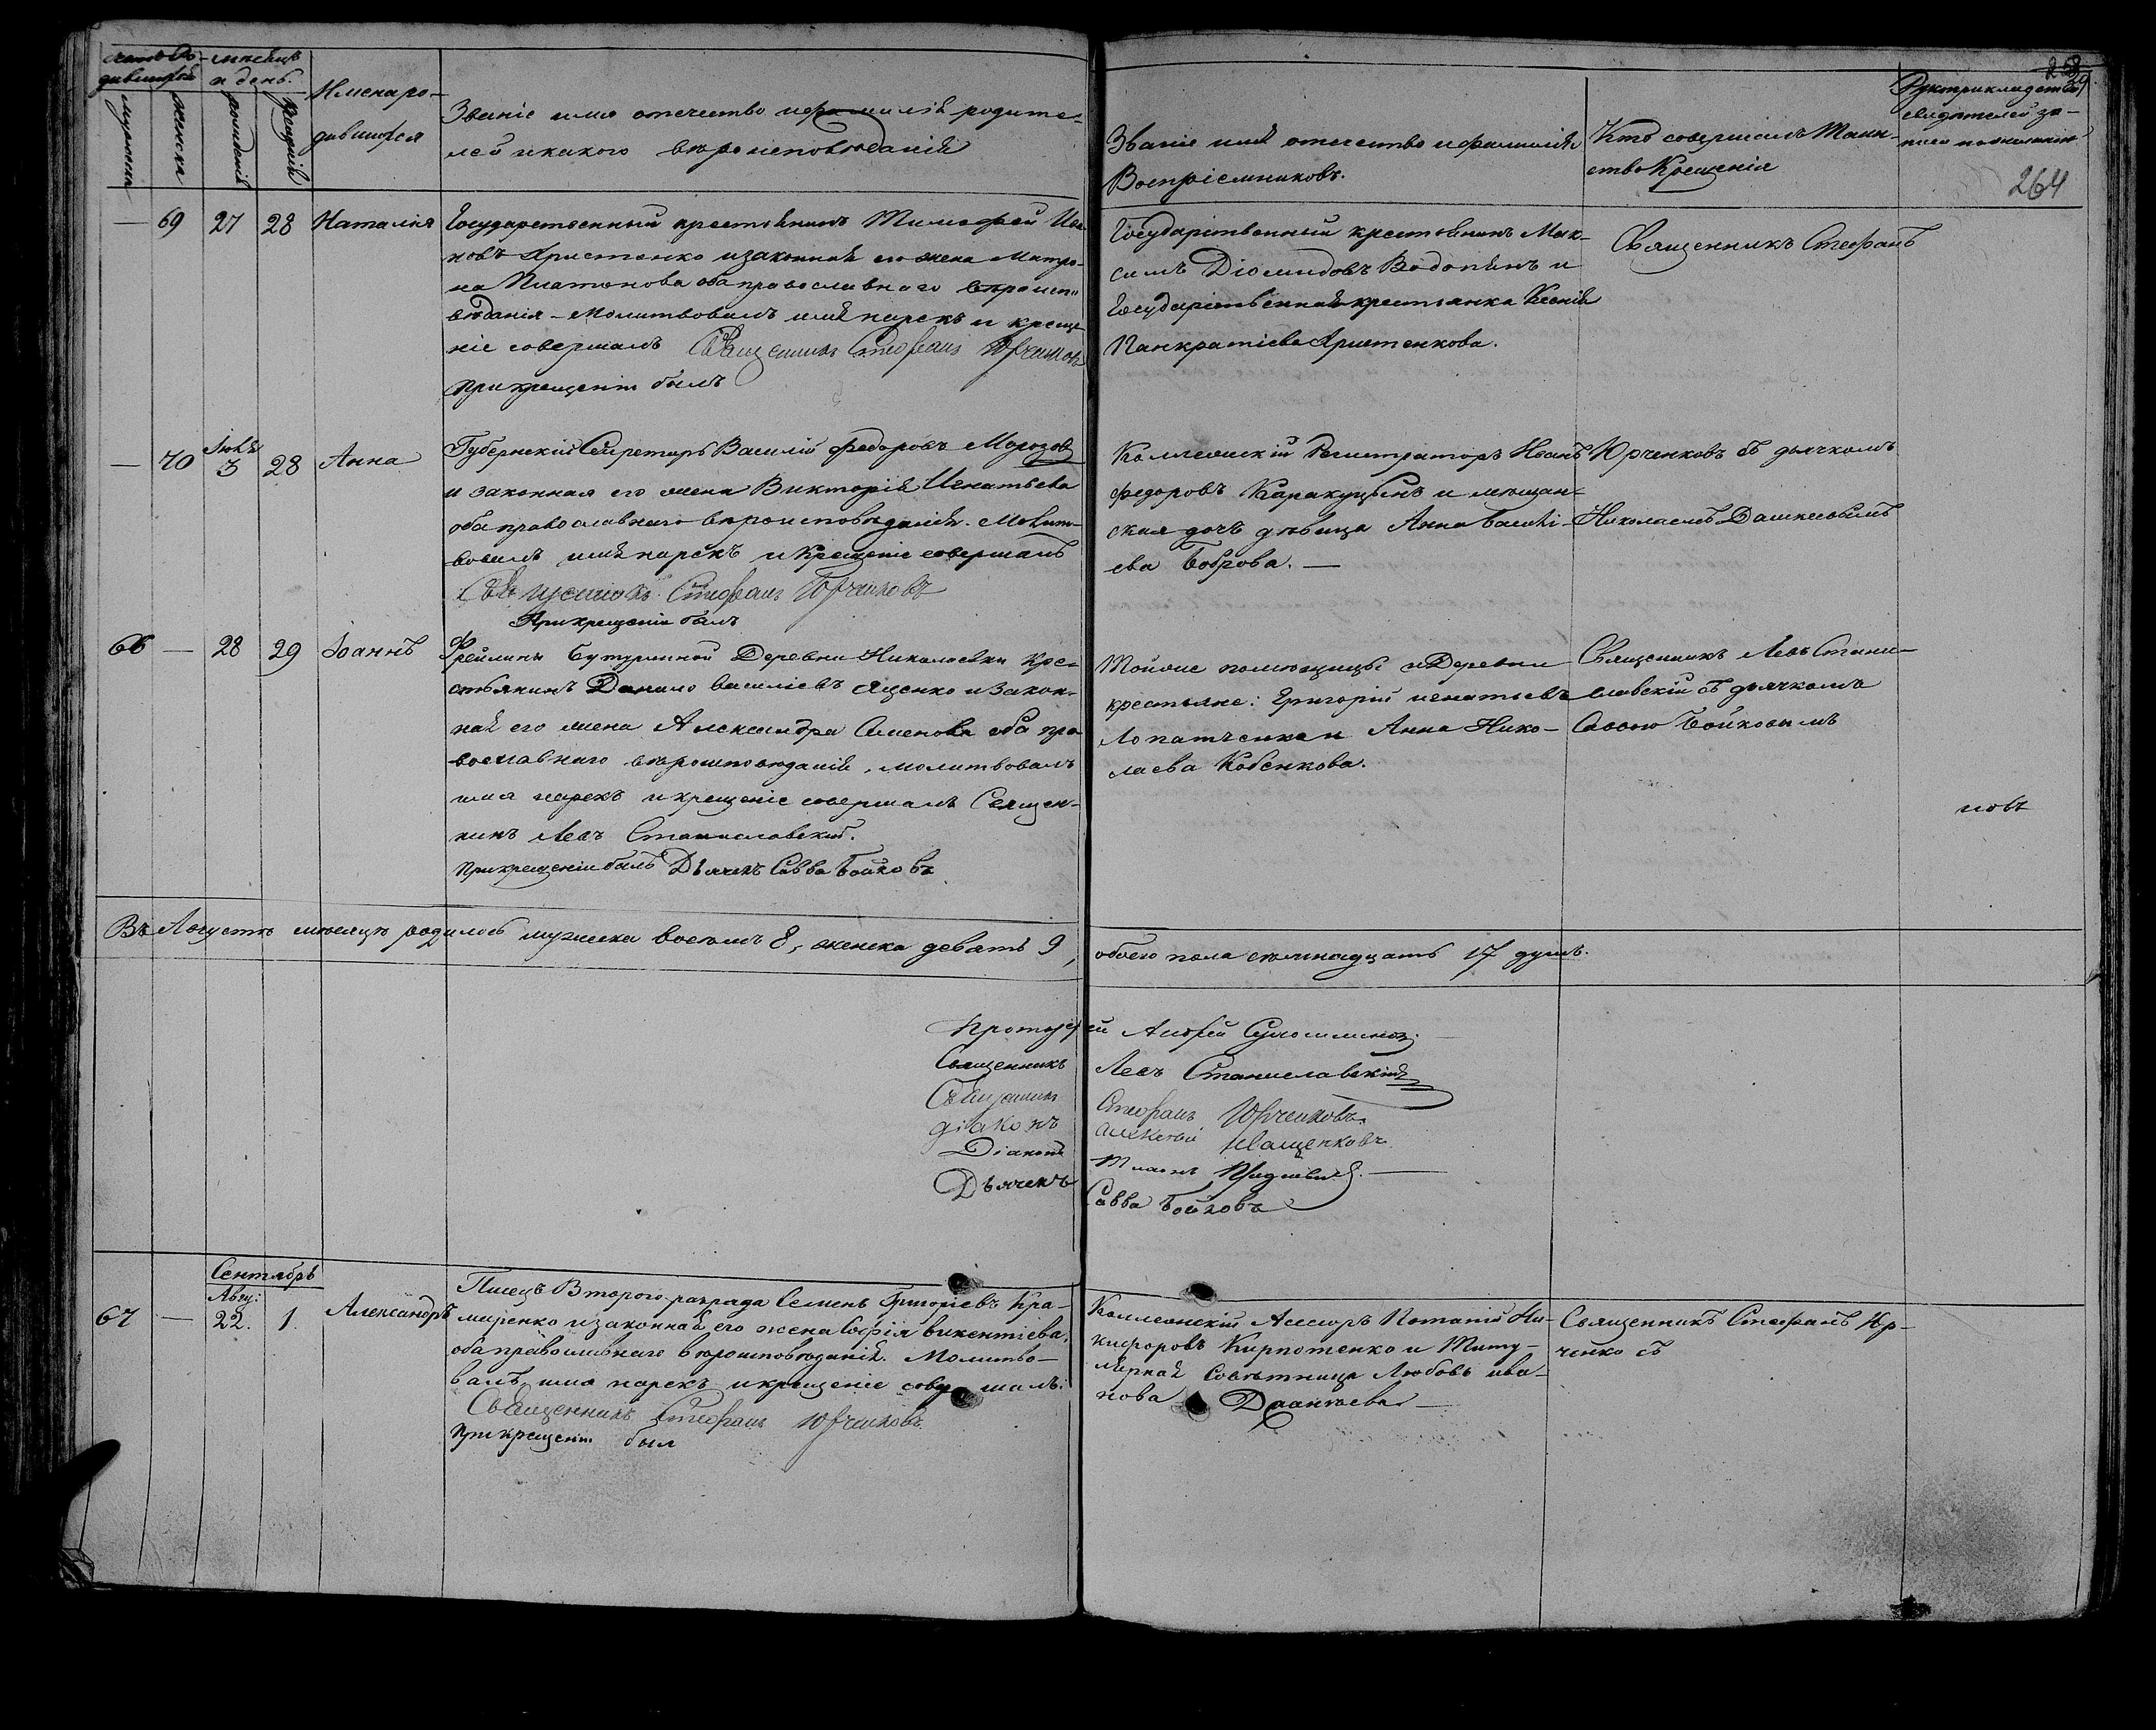 Счетъ Ро-
дившихся
мѣсяцъ
и день.
мужеска
женска
рожденія
крещенія
Имена ро-
дившихся
Званіе имя отечество и фамилія родите-
лей и какого вѣроисповѣданія
Званіе имя отечество и фамилія
Воспріемниковъ.
Кто совершилъ Таин-
ство Крещенія
Рукоприкладство
свидѣтелей за-
писи по желанію
264
— 69 27 28 Наталія
Государственный крестьянинъ Тимофей Ива-
новъ Христенко и законная его жена Матро-
на Платонова оба православнаго вѣроиспо-
вѣданія – Молитвовалъ имя нарекъ и креще-
ніе совершалъ Священникъ Стефанъ Юрченковъ
При крещеніи былъ
Государственный крестьянинъ Мак-
симъ Діомидовъ Водопянъ и
Государственная крестьянка Ксенія
Панкратіева Христенкова.
Священникъ Стефанъ
— 70 Іюля 3 28 Анна
Губернскій Секретарь Василій Федоровъ Морозовъ
и законная его жена Викторія Игнатьева
оба православнаго вѣроисповѣданія. Молит-
вовалъ имя нарекъ и Крещеніе совершалъ
Священникъ Стефанъ Юрченковъ
При крещеніи былъ
Коллежскій Регистраторъ Иванъ
Федоровъ Каракуцынъ и мѣщан-
ская дочь дѣвица Анна Василі-
ева Боброва. —
Юрченковъ съ дьячкомъ
Николаемъ Дашкеевымъ
66 — 28 29 Іоаннъ
Фрейлины Бутурлиной Деревни Николаевки кре-
стьянинъ Данило Василіевъ Яценко и закон-
ная его жена Александра Семенова оба пра-
вославнаго вѣроисповѣданія, молитвовалъ
имя нарекъ и крещеніе совершалъ Священ-
никъ Левъ Станиславскій.
При крещеніи былъ Дьячекъ Савва Бойковъ
Той же помѣщицы и Деревни
крестьяне: Григорій Игнатьевъ
Лопатченко и Анна Нико-
лаева Кобенкова.
Священникъ Левъ Стани-
славскій съ дьячкомъ
Саввою Бойковымъ
новъ
Въ Августѣ мѣсяцѣ родилось мужеска восемь 8, женска девять 9, обоего пола семнадцать 17 душъ.
Протоіерей Андрей
Священникъ Левъ Станиславскій
Священникъ Стефанъ Юрченковъ
діаконъ Алексій Иващенковъ
Діаконъ
Дьячекъ Савва Бойковъ
Сентябрь
67 — Авг: 22. 1. Александръ
Писецъ Втораго разряда Семенъ Григоріевъ Кра-
маренко и законная его жена Софія Викентіева,
оба православнаго вѣроисповѣданія. Молитво-
валъ, имя нарекъ и крещеніе совершалъ:
Священникъ Стефанъ Юрченковъ
При крещеніи был
Коллежскій Асессоръ Ипатій Ни-
кифоровъ Кирпотенко и Титу-
лярная Совѣтница Любовь Ива-
нова
Священникъ Стефанъ Юр-
ченко съ